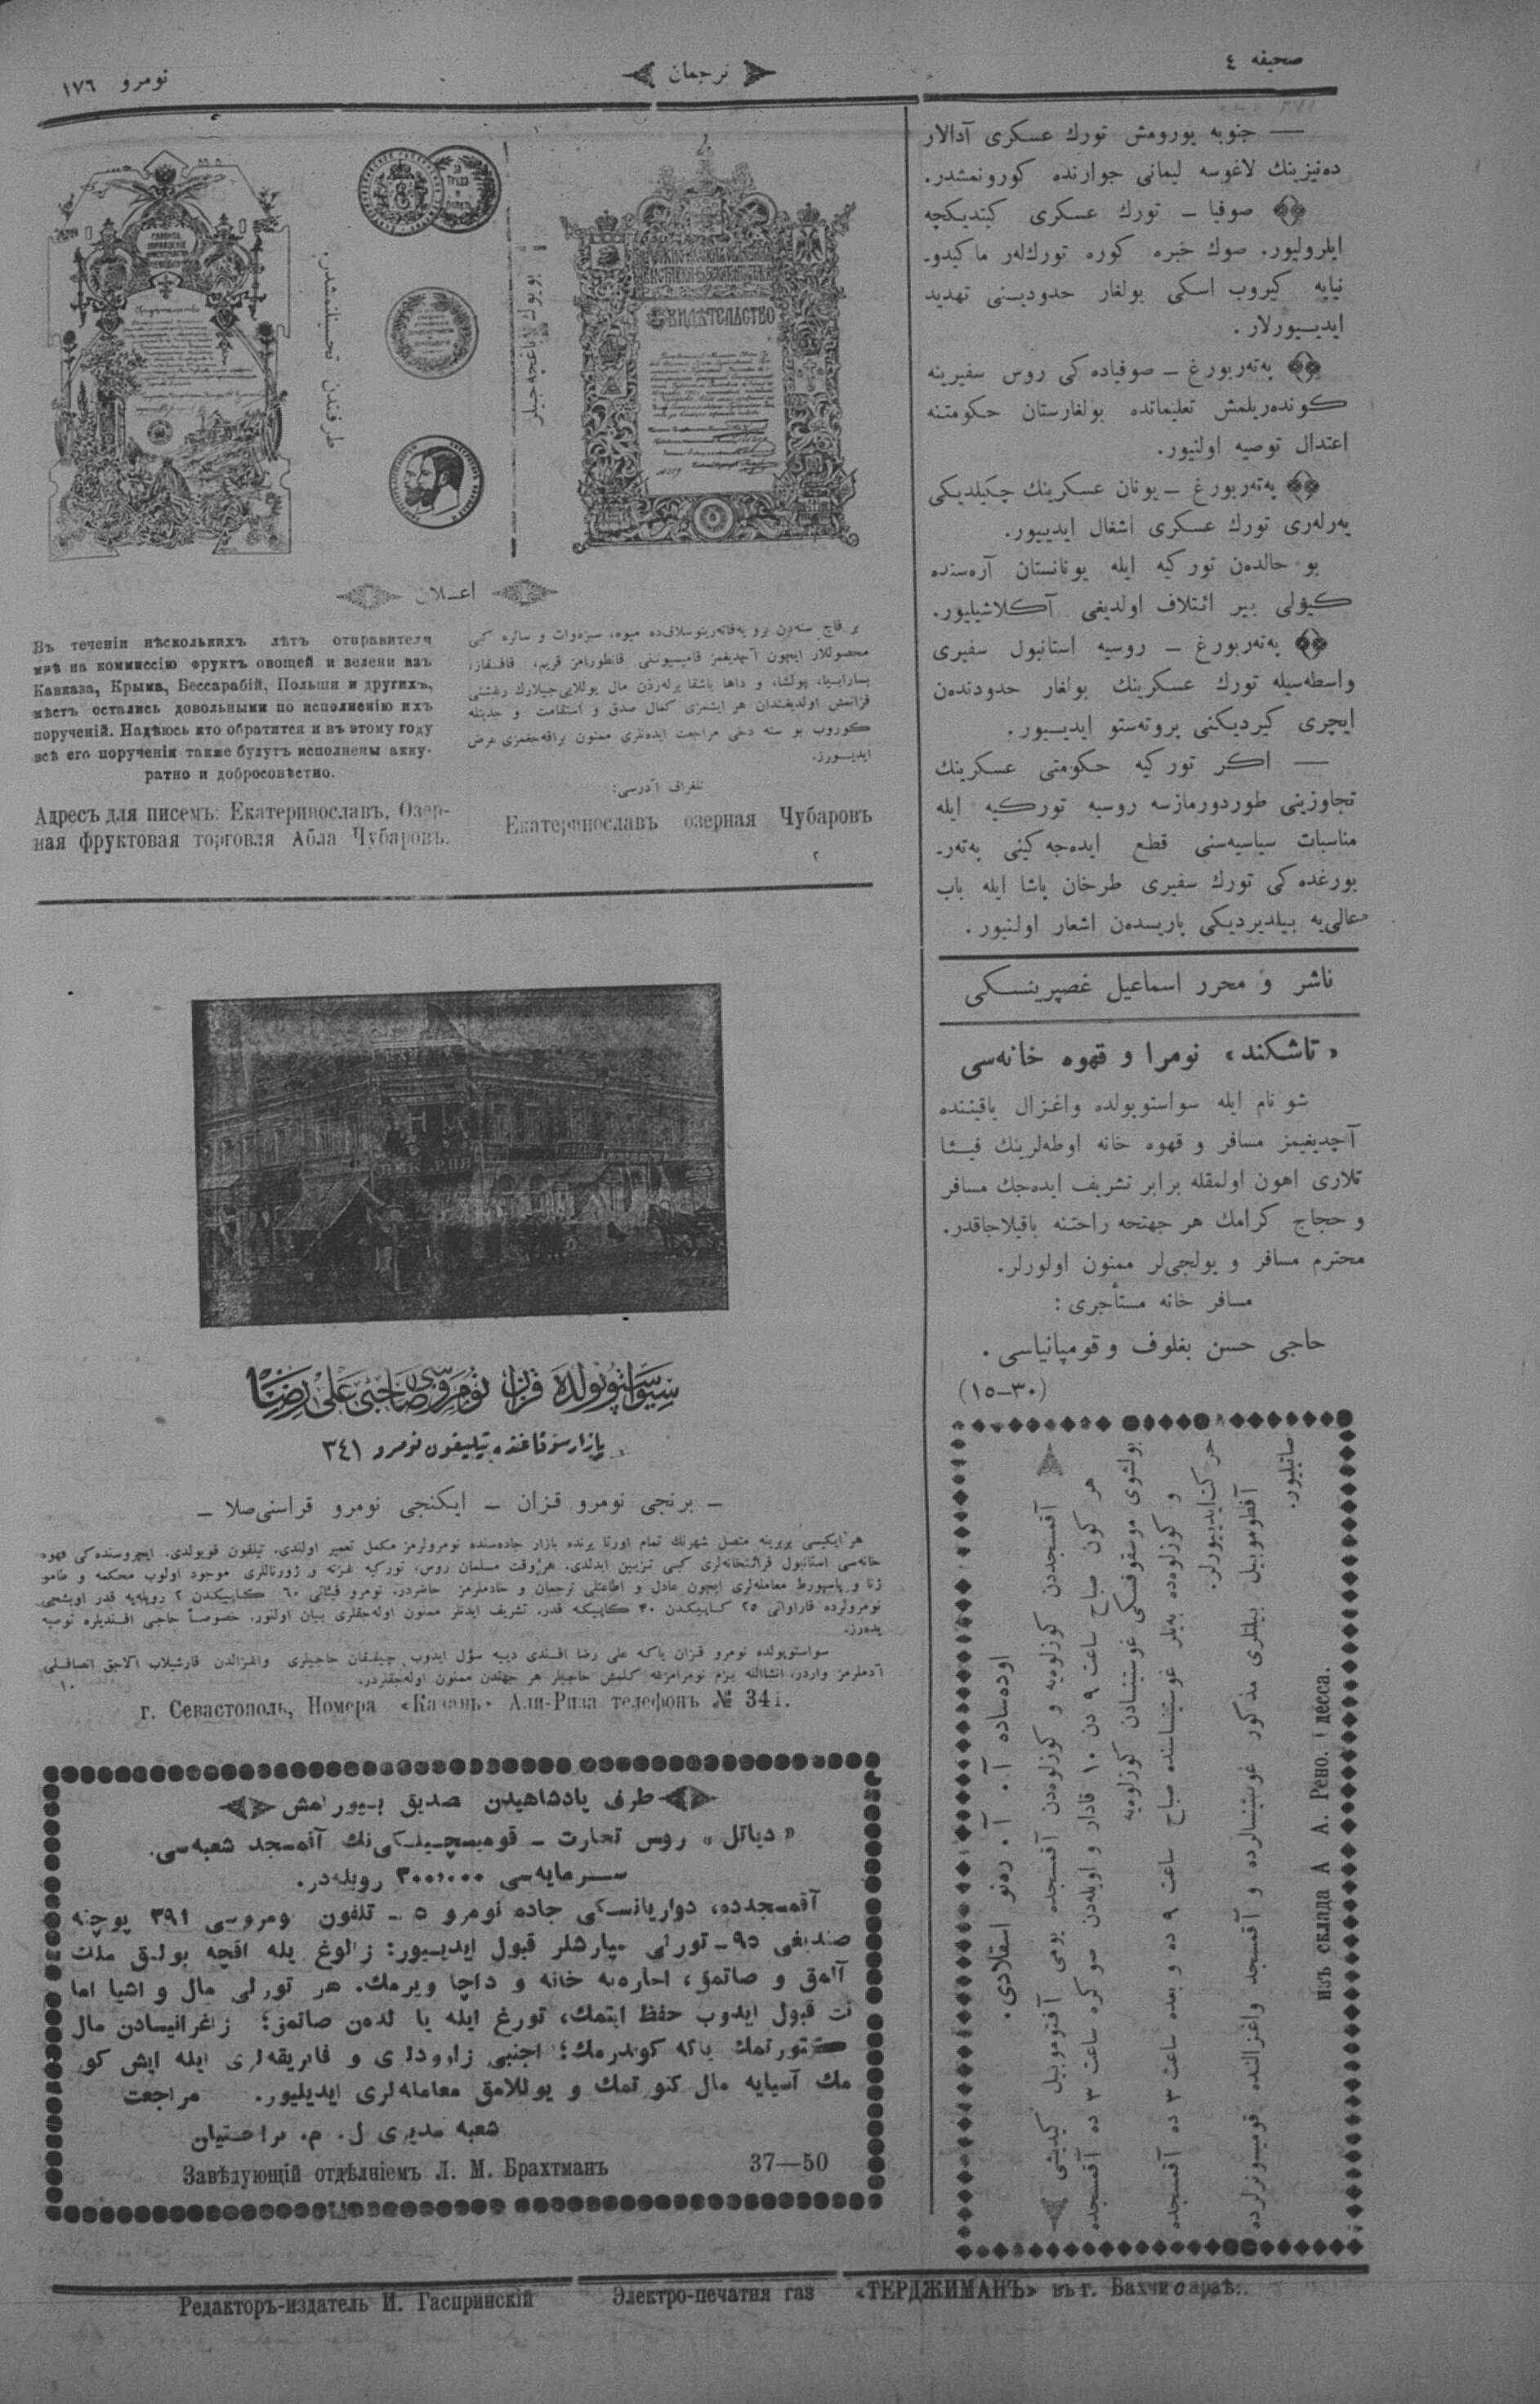 صحیفه ٤
ترجمان
نومرو ١٧٦
— جنوبه یورومش تورك عسکری آدالار
دەنیزینك لاغوسه لیمانی جوارنده کورونمشدر.
صوفیا — تورك عسکری کیتدیکچه
ایلرولیور. صوك خبره کوره تورك‌لەر ماکیدو-
نیایه کیروب اسکی بولغار حدودینی تهدید
ایدییورلار.
پەتەربورغ — صوفیاده‌کی روس سفیرینه
کوندەریلمش تعلیماتده بولغارستان حکومتنه
اعتدال توصیه اولنیور.
پەتەربورغ — یونان عسکرینك چکیلدیکی
یەرلەری تورك عسکری اشغال ایدییور.
بو حالدەن تورکیه ایله یونانستان آرەسنده
کیزلی بیر ائتلاف اولدیغی آکلاشیلیور.
پەتەربورغ — روسیه استانبول سفیری
واسطەسیله تورك عسکرینك بولغار حدودندەن
ایچری کیردیکنی پروتەستو ایدییور.
— اکر تورکیه حکومتی عسکرینك
تجاوزینی طوردورمازسه روسیه تورکیه ایله
مناسبات سیاسیەسنی قطع ایدەجەکینی پەتەر-
بورغده‌کی تورك سفیری طرخان پاشا ایله باب
عالی‌یه بیلدیردیکی پاریسدەن اشعار اولنیور.
ناشر و محرر اسماعیل غصپرینسکی
«تاشکند» نومرا و قهوه خانه‌سی
شو نام ایله سواستوپولده واغزال یاقیننده
آچدیغیمز مسافر و قهوه خانه اوطەلرینك فیئا
تلاری اهون اولمقله برابر تشریف ایدەجك مسافر
و حجاج کرامك هر جهتجه راحتنه باقیلاجاقدر.
محترم مسافر و یولجی‌لر ممنون اولورلر.
مسافر خانه مستأجری:
حاجی حسن بغلوف و قومپانیاسی.
(١٥—٣٠)
اودەساده آ. آ. رەنو اسقلادی.
آقمسجددن کوزلوه‌یه و کوزلوه‌دن آقمسجده یومی آفتوموبیل کیدیشی
هر کون صباح ساعت ٩ دن ١٠ قادار و اویلەدن صوکره ساعت ٣ ده آقمسجده
بولشوی موسقوفسکی غوستینسادن کوزلوه‌یه
و کوزلوه‌ده بەیلر غوستینساسنده صباح ساعت ٩ ده و بعده ساعت ٣ ده آقمسجده
حرکت ایدییورلر.
آفطوموبیل بیلتلری مذکور غوستینسالرده و آقمسجد واغزالنده قومیسیونرلرده
صاتیلیور.
изъ склада А А. Рено. Одесса.
بویوك باغچه‌جیلر
طرفندن تحسیناتمشدر.
СВИДѢТЕЛЬСТВО
اعلان
بر قاچ سنەدن برو یەقاتەرینوسلاف‌ده میوه، سبزەوات و سائره کبی
محصوللار ایچون آچدیغمز قامیسیوننی قانطورامز قریم، قافقاز،
بسارابیا، پولشا، و داها باشقا یرلەردن مال یوللایی‌جیلارك رغبتنی
قزانمش اولدیغندان هر ایشمزی کمال صدق و استقامت و جدیتله
کوروب بو سنه دخی مراجعت ایدەنلری ممنون براقەجغمزی عرض
ایدییورز.
تلغراف آدرسی:
Екатеринославъ озерная Чубаровъ
٢
Въ теченіи нѣсколькихъ лѣтъ отправители
мнѣ на коммиссію фруктъ овощей и зелени изъ
Кавказа, Крыма, Бессарабій, Польши и другихъ,
мѣстъ остались довольными по исполненію ихъ
порученій. Надѣюсь кто обратится и въ этому году
всѣ его порученія также будутъ исполнены акку-
ратно и добросовѣстно.
Адресъ для писемъ: Екатеринославъ, Озер-
ная фруктовая торговля Абла Чубаровъ.
ПЕКАРНЯ
سیواستوپولده قزان نومروسی صاحبی علی رضا
پازار سوقاغنده تیلیفون نومرو ٣٤١
— برنجی نومرو قزان — ایکنجی نومرو قراسنی‌صلا —
هر ایکیسی بربرینه متصل شهرنك تمام اورتا یرنده بازار جادەسنده نومرولرمز مکمل تعمیر اولندی. تیلفون قویولدی. ایچروسنده‌کی قهوه
خانەسی استانبول قرائتخانەلری کبی تزیین ایدلدی. هر وقت مسلمان روس، تورکیه غزته و ژورناللری موجود اولوب محکمه و طامو
ژنا و پاسپورط معاملەلری ایچون عادل و اطاعتلی ترجمان و خادملرمز حاضردر. نومرو فیئاتی ٦٠ کاپیکدن ٢ روبلەیه قدر اوبشچی
نومرولرده قاراواتی ٢٥ کاپیکدن ٤٠ کاپیکه قدر. تشریف ایدنلر ممنون اولەجقلری بیان اولنور. خصوصاً حاجی افندیلره توصیه
یدەرز.
سواستوپولده نومرو قزان یاکه علی رضا افندی دییه سؤل ایدوب چیقیقان حاجیلری واغزالدن قارشیلاب آلاجق انصافلی
آدملرمز واردر. انشاالله بزم نومرامزغه کلمش حاجیلر هر جهتدن ممنون اولەجقلردر.
١٠
г. Севастополь, Номера «Казань» Али-Риза телефонъ № 341.
طرف پادشاهیدن تصدیق بیورلمش
«دیاتل» روس تجارت — قومیسچیلیکی‌نك آقمسجد شعبه‌سی.
سرمایه‌سی ٣٠٠،٠٠٠ روبلەدر.
آقمسجدده، دواریانسکی جاده نومرو ٥ — تلفون نومروسی ٣٩١ پوچته
صندیغی ٩٥ — تورلی سپارشلر قبول ایدییور: زالوغ یله اقچه بولیق ملك
آلمق و صاتمق، اجارەیه خانه و داچا ویرمك. هر تورلی مال و اشیا اما
نت قبول ایدوب حفظ ایتمك، تورغ ایله یا الدەن صاتمق؛ زاغرانیسادن مال
کتورتمك یاکه کوندرمك؛ اجنبی زاوودلری و فابریقەلری ایله ایش کور
مك آسیایه مال کتورتمك و یوللامق معاملەلری ایدیلیور. مراجعت
شعبه مدیری ل. م. براختمان
Завѣдующій отдѣлніемъ Л. М. Брахтманъ
37—50
Редакторъ-издатель И. Гаспринскій
Электро-печатня газ «ТЕРДЖИМАНЪ» въ г. Бахчисараѣ.